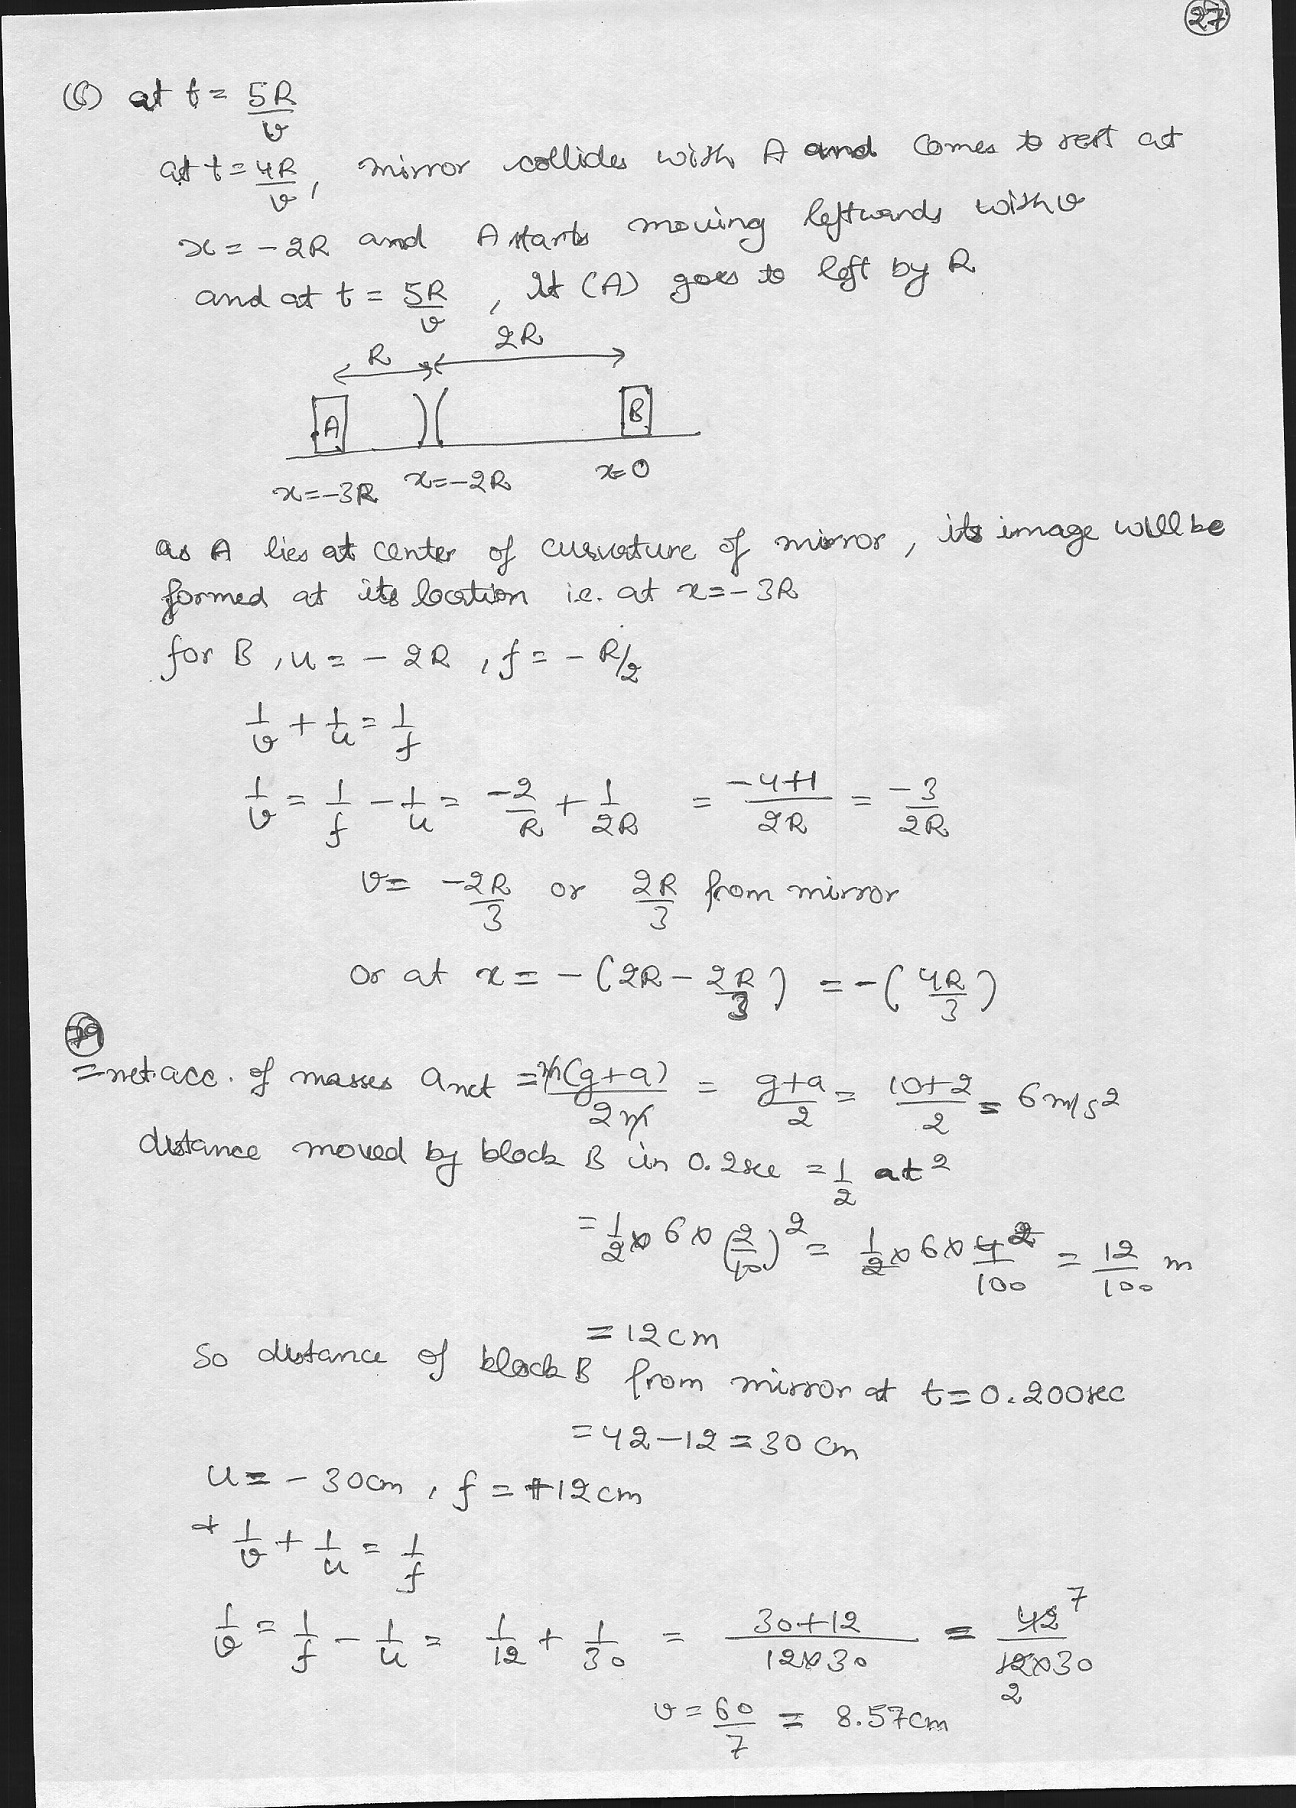 27
(b) at t = 5R/v
at t = 4R/v, mirror collides with A and comes to rest at
x = -2R and A starts moving leftwards with v
and at t = 5R/v, It (A) goes to left by R
R 2R
A B
x=-3R x=-2R x=0
as A lies at center of curvature of mirror, its image will be
formed at its location i.e. at x=-3R
for B, u = -2R, f = -R/2
1/v + 1/u = 1/f
1/v = 1/f - 1/u = -2/R + 1/2R = -4+1/2R = -3/2R
v = -2R/3 or 2R/3 from mirror
or at x = -(2R - 2R/3) = -(4R/3)
79
= net acc. of masses a net = m(g+a)/2m = g+a/2 = 10+2/2 = 6 m/s2
distance moved by block B in 0.2sec = 1/2 at2
= 1/2 x 6 x (2/10)2 = 1/2 x 6 x 4 2/100 = 12/100 m
= 12cm
So distance of block B from mirror at t=0.200sec
= 42-12 = 30 cm
u = -30cm, f = +12cm
1/v + 1/u = 1/f
1/v = 1/f - 1/u = 1/12 + 1/30 = 30+12/12x30 = 42 7/12x30 2
v = 60/7 = 8.57cm